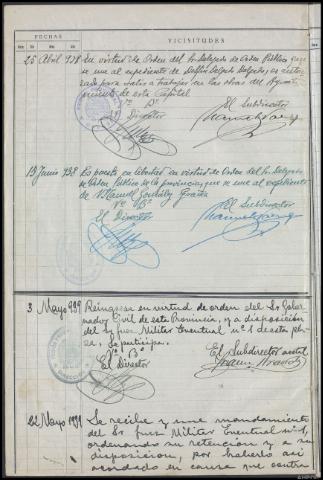 FECHAS
VICISITUDES
25 Abril 938 En virtud de Orden del Sr. Delegado de Orden Público que
se une al expediente de Delfín Delgado Delgado, es
para salir a trabajar en las obras del
de esta Capital
Vº Bº
El Subdirector
El Director
19 Junio 938 Es puesto en libertad en virtud de Orden del Sr. Delegado
de Orden Público de la provincia, que se une al expediente
de Manuel
Vº Bº
El Subdirector
El Director
3 Mayo 939 Reingresa en virtud de orden del Sr. Gober
nador Civil de esta Provincia, y a disposición
del Sr Juez Militar Eventual nº 1 de esta pla-
za. Se participa.
Vº Bº
El Subdirector acctal
El Director
22 Mayo 1939 Se recibe y une mandamiento
del Sr Juez Militar Eventual nº 1,
ordenando su retención y a su
disposición, por haberlo así
acordado en causa que contra